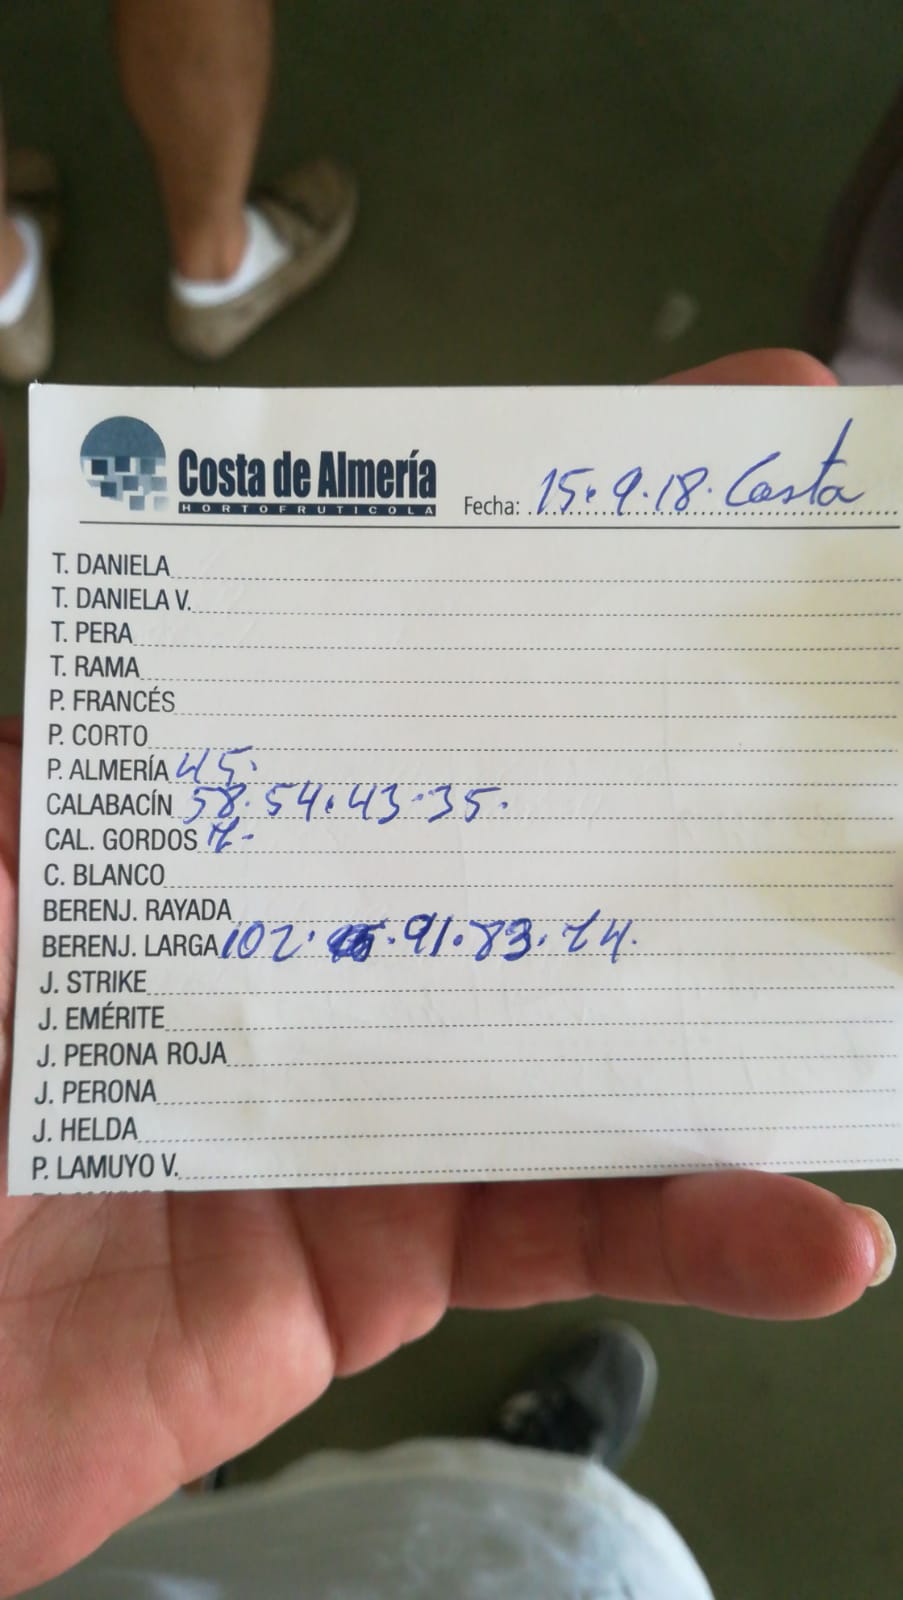 Costa de Almería
HORTOFRUTICOLA
Fecha: 15.9.18. Costa
T. DANIELA
T. DANIELA V.
T. PERA
T. RAMA
P. FRANCÉS
P. CORTO
P. ALMERÍA 45.
CALABACÍN 58.54.43.35.
CAL. GORDOS
C. BLANCO
BERENJ. RAYADA
BERENJ. LARGA 102. 91.83.74.
J. STRIKE
J. EMÉRITE
J. PERONA ROJA
J. PERONA
J. HELDA
P. LAMUYO V.